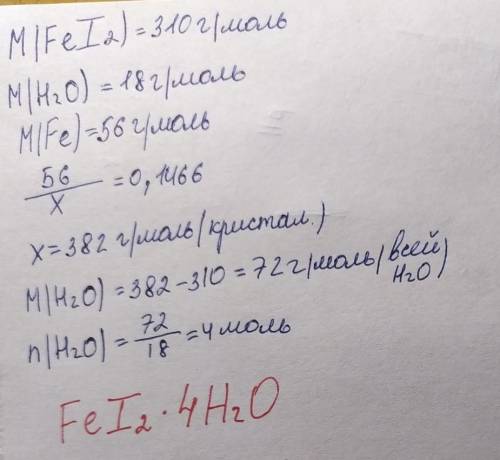 M(FeI₂)=310г/моль
M(H₂O)=18г/моль
M(Fe)=56г/моль
56/x=0,1466
x=382г/моль(кристал.)
M(H₂O)=382-310=72г/моль(всей H₂O)
n(H₂O)=72/18=4моль
FeI₂·4H₂O